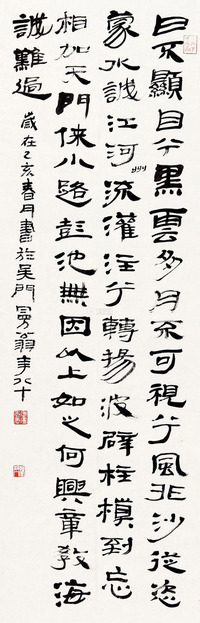 日不顯目兮黑雲多月不可視兮風非沙從恣
蒙水誠江河州流灌注兮轉揚波辟柱槙到忘
相加天門俠小路彭池無因以上如之何興章教海
誠難過
歲在乙亥春月書於吳門曼翁年八十